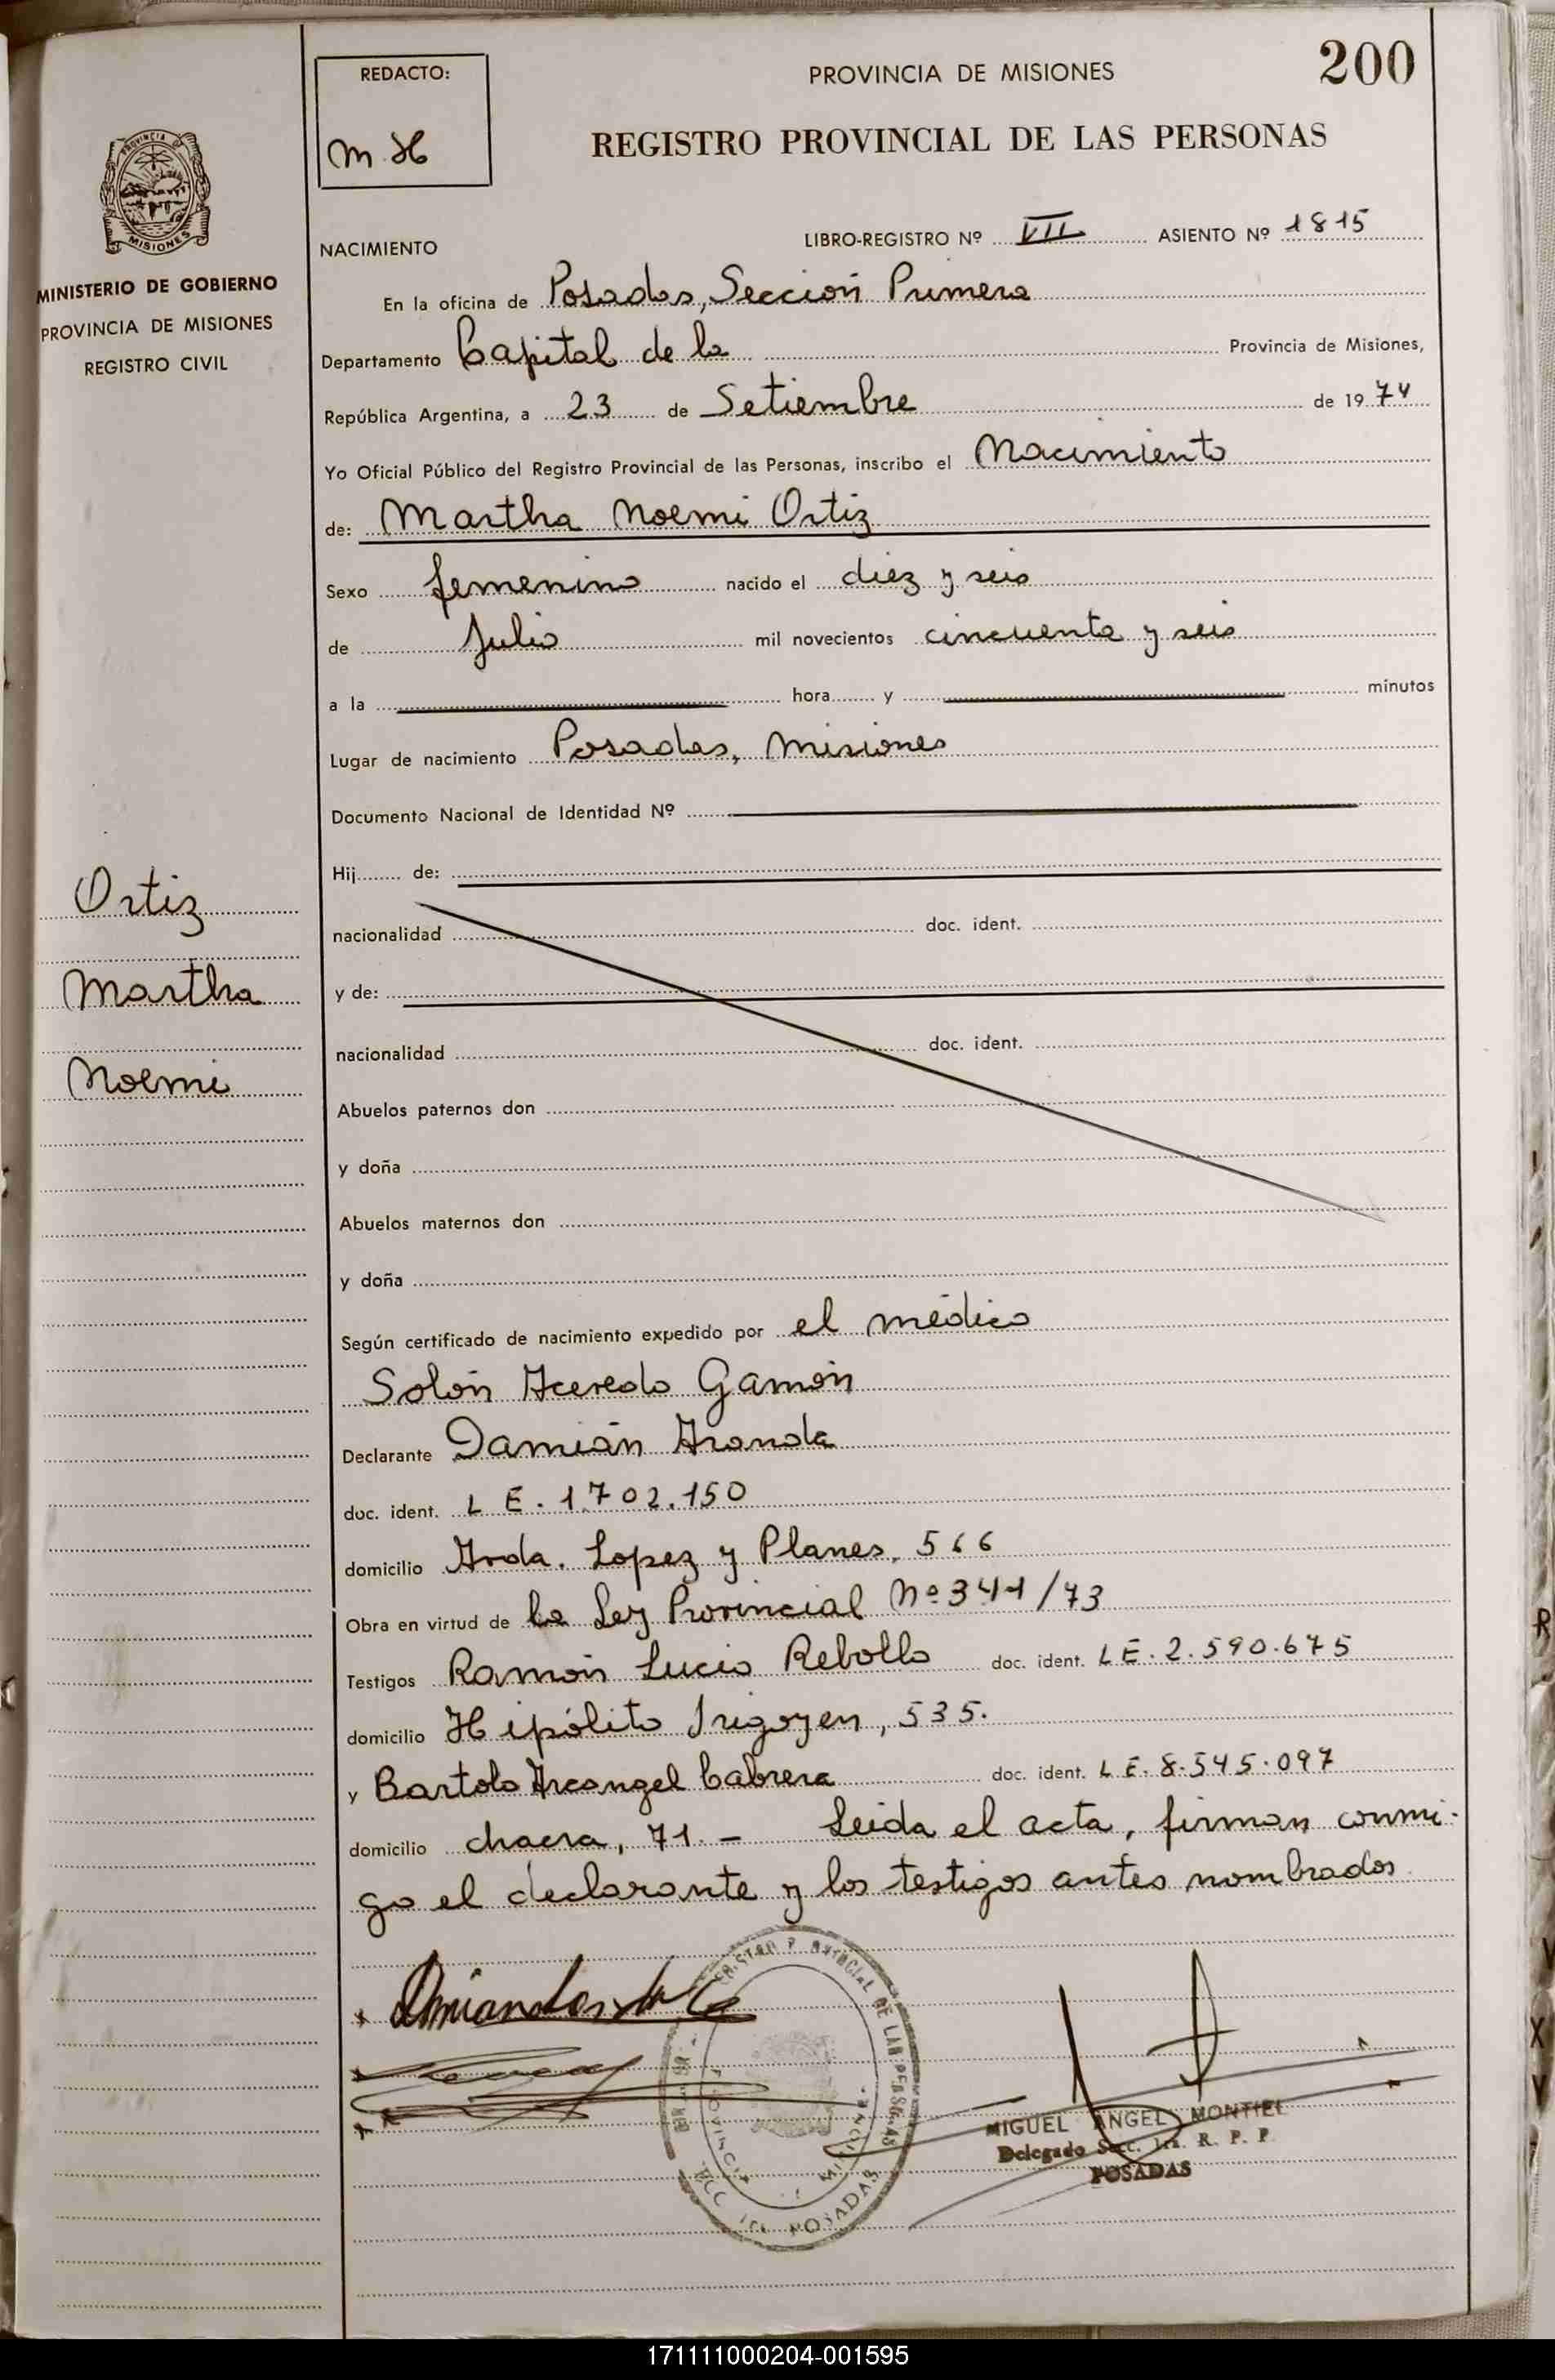 REDACTO:
M. H
PROVINCIA DE MISIONES
200
REGISTRO PROVINCIAL DE LAS PERSONAS
PROVINCIA
MISIONES
MINISTERIO DE GOBIERNO
PROVINCIA DE MISIONES
REGISTRO CIVIL
NACIMIENTO
LIBRO-REGISTRO Nº VII ASIENTO Nº 1815
En la oficina de Posadas, Sección Primera
Departamento Capital de la Provincia de Misiones,
República Argentina, a 23 de Setiembre de 1974
Yo Oficial Público del Registro Provincial de las Personas, inscribo el Nacimiento
de: Martha Noemi Ortiz
Sexo femenino nacido el diez y seis
de Julio mil novecientos cincuenta y seis
a la hora y minutos
Lugar de nacimiento Posadas, Misiones
Documento Nacional de Identidad Nº
Hij de:
nacionalidad doc. ident.
y de:
nacionalidad doc. ident.
Abuelos paternos don
y doña
Abuelos maternos don
y doña
Ortiz
Martha
Noemi
Según certificado de nacimiento expedido por el médico
Solón Acevedo Gamón
Declarante Damián Aranda
doc. ident. L E. 1.702.150
domicilio Avda. Lopez y Planes, 566
Obra en virtud de la Ley Provincial Nº 341/73
Testigos Ramón Lucio Rebollo doc. ident. L E. 2.590.675
domicilio Hipólito Irigoyen, 535.
y Bartolo Arcangel Cabrera doc. ident. L E. 8.545.097
domicilio chacra, 71. - Leida el acta, firman conmi-
go el declarante y los testigos antes nombrados
MIGUEL ANGEL MONTIEL
Delegado Secc. 1ra. R. P. P.
POSADAS
171111000204-001595